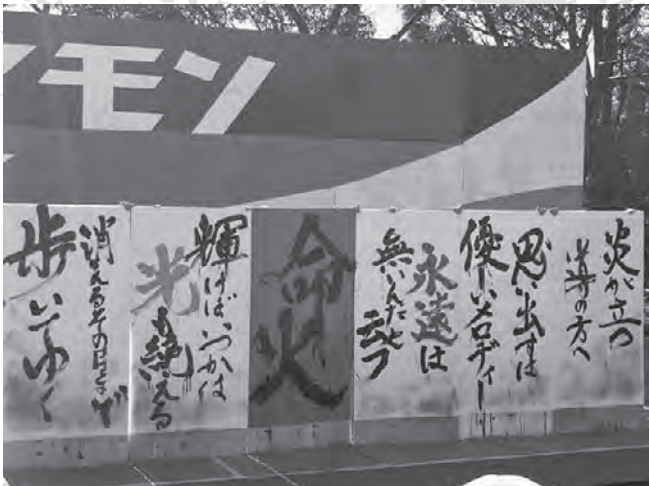 モン
炎が立つ
の方へ
思い出すは
優しいメロディー
永遠は
無いんだと云フ
命火
輝けばいつかは
光も絶える
消えるその日まで
歩いてゆく